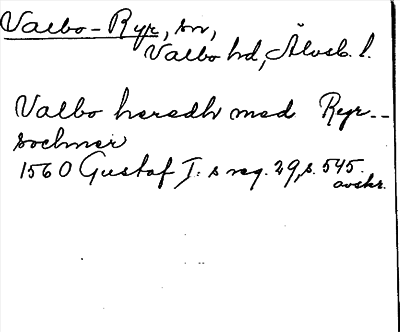 Valbo-Ryr, sn,
Valbo hd, Älvsb. l.
Valbo heredh med Ryr--
sochner
1560 Gustaf I:s reg. 29, s. 545.
avskr.